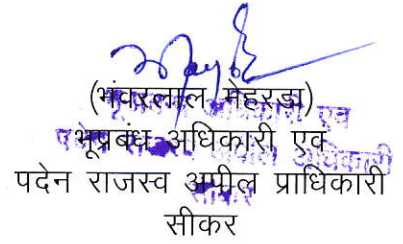 (भंवरलाल मेहरडा)
भूप्रबंध अधिकारी एवं
पदेन राजस्व अपील प्राधिकारी
सीकर